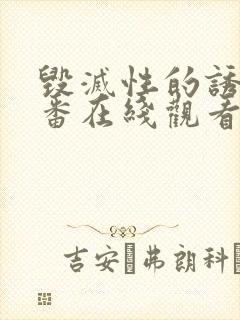 毀滅性的誘
番在綫觀看
吉安·弗朗科·